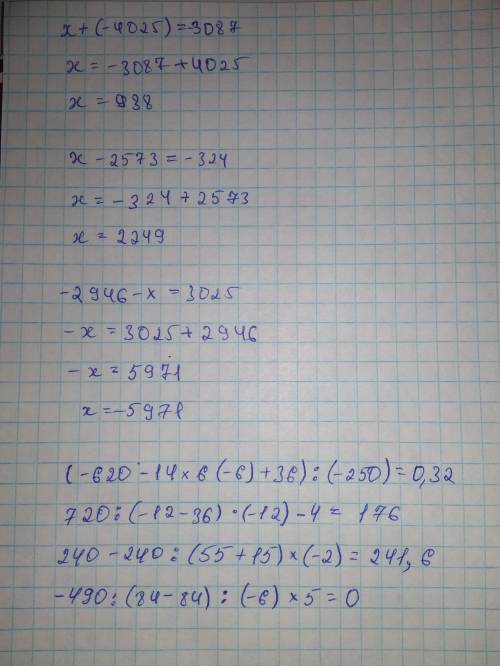 x + (-4025) = -3087
x = -3087 + 4025
x = 938
x - 2573 = -324
x = -324 + 2573
x = 2249
-2946 - x = 3025
-x = 3025 + 2946
-x = 5971
x = -5971
(-620 - 14 × 6 (-6) + 36) : (-250) = 0,32
720 : (-12 - 36) · (-12) - 4 = 176
240 - 240 : (55 + 15) × (-2) = 241,6
-490 : (84 - 84) : (-6) × 5 = 0